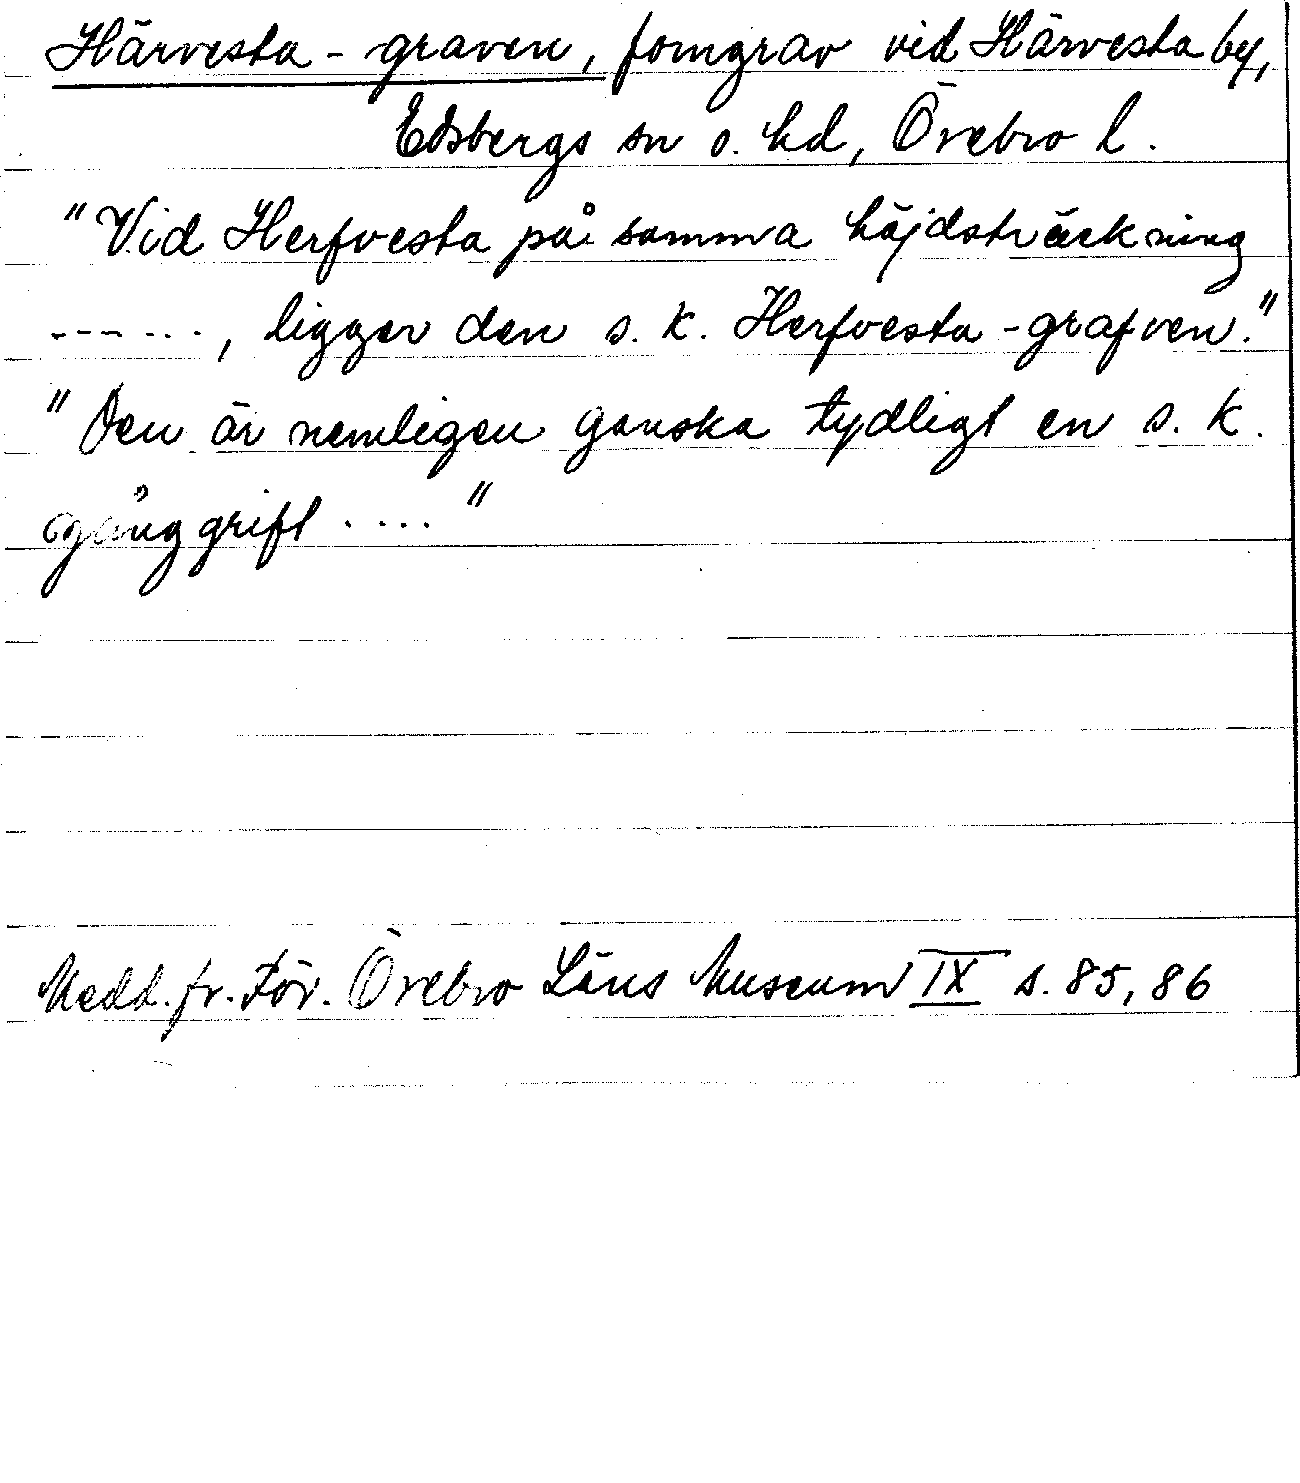 Härvesta-graven, forngrav vid Härvesta by,
Edsbergs sn o. hd, Örebro l.
"Vid Herfvesta på samma höjdsträckning
------, ligger den s. k. Herfvesta-grafven."
"Den är nemligen ganska tydligt en s. k.
gånggrift ...."
Medd. fr. För. Örebro Läns Museum IX s. 85, 86